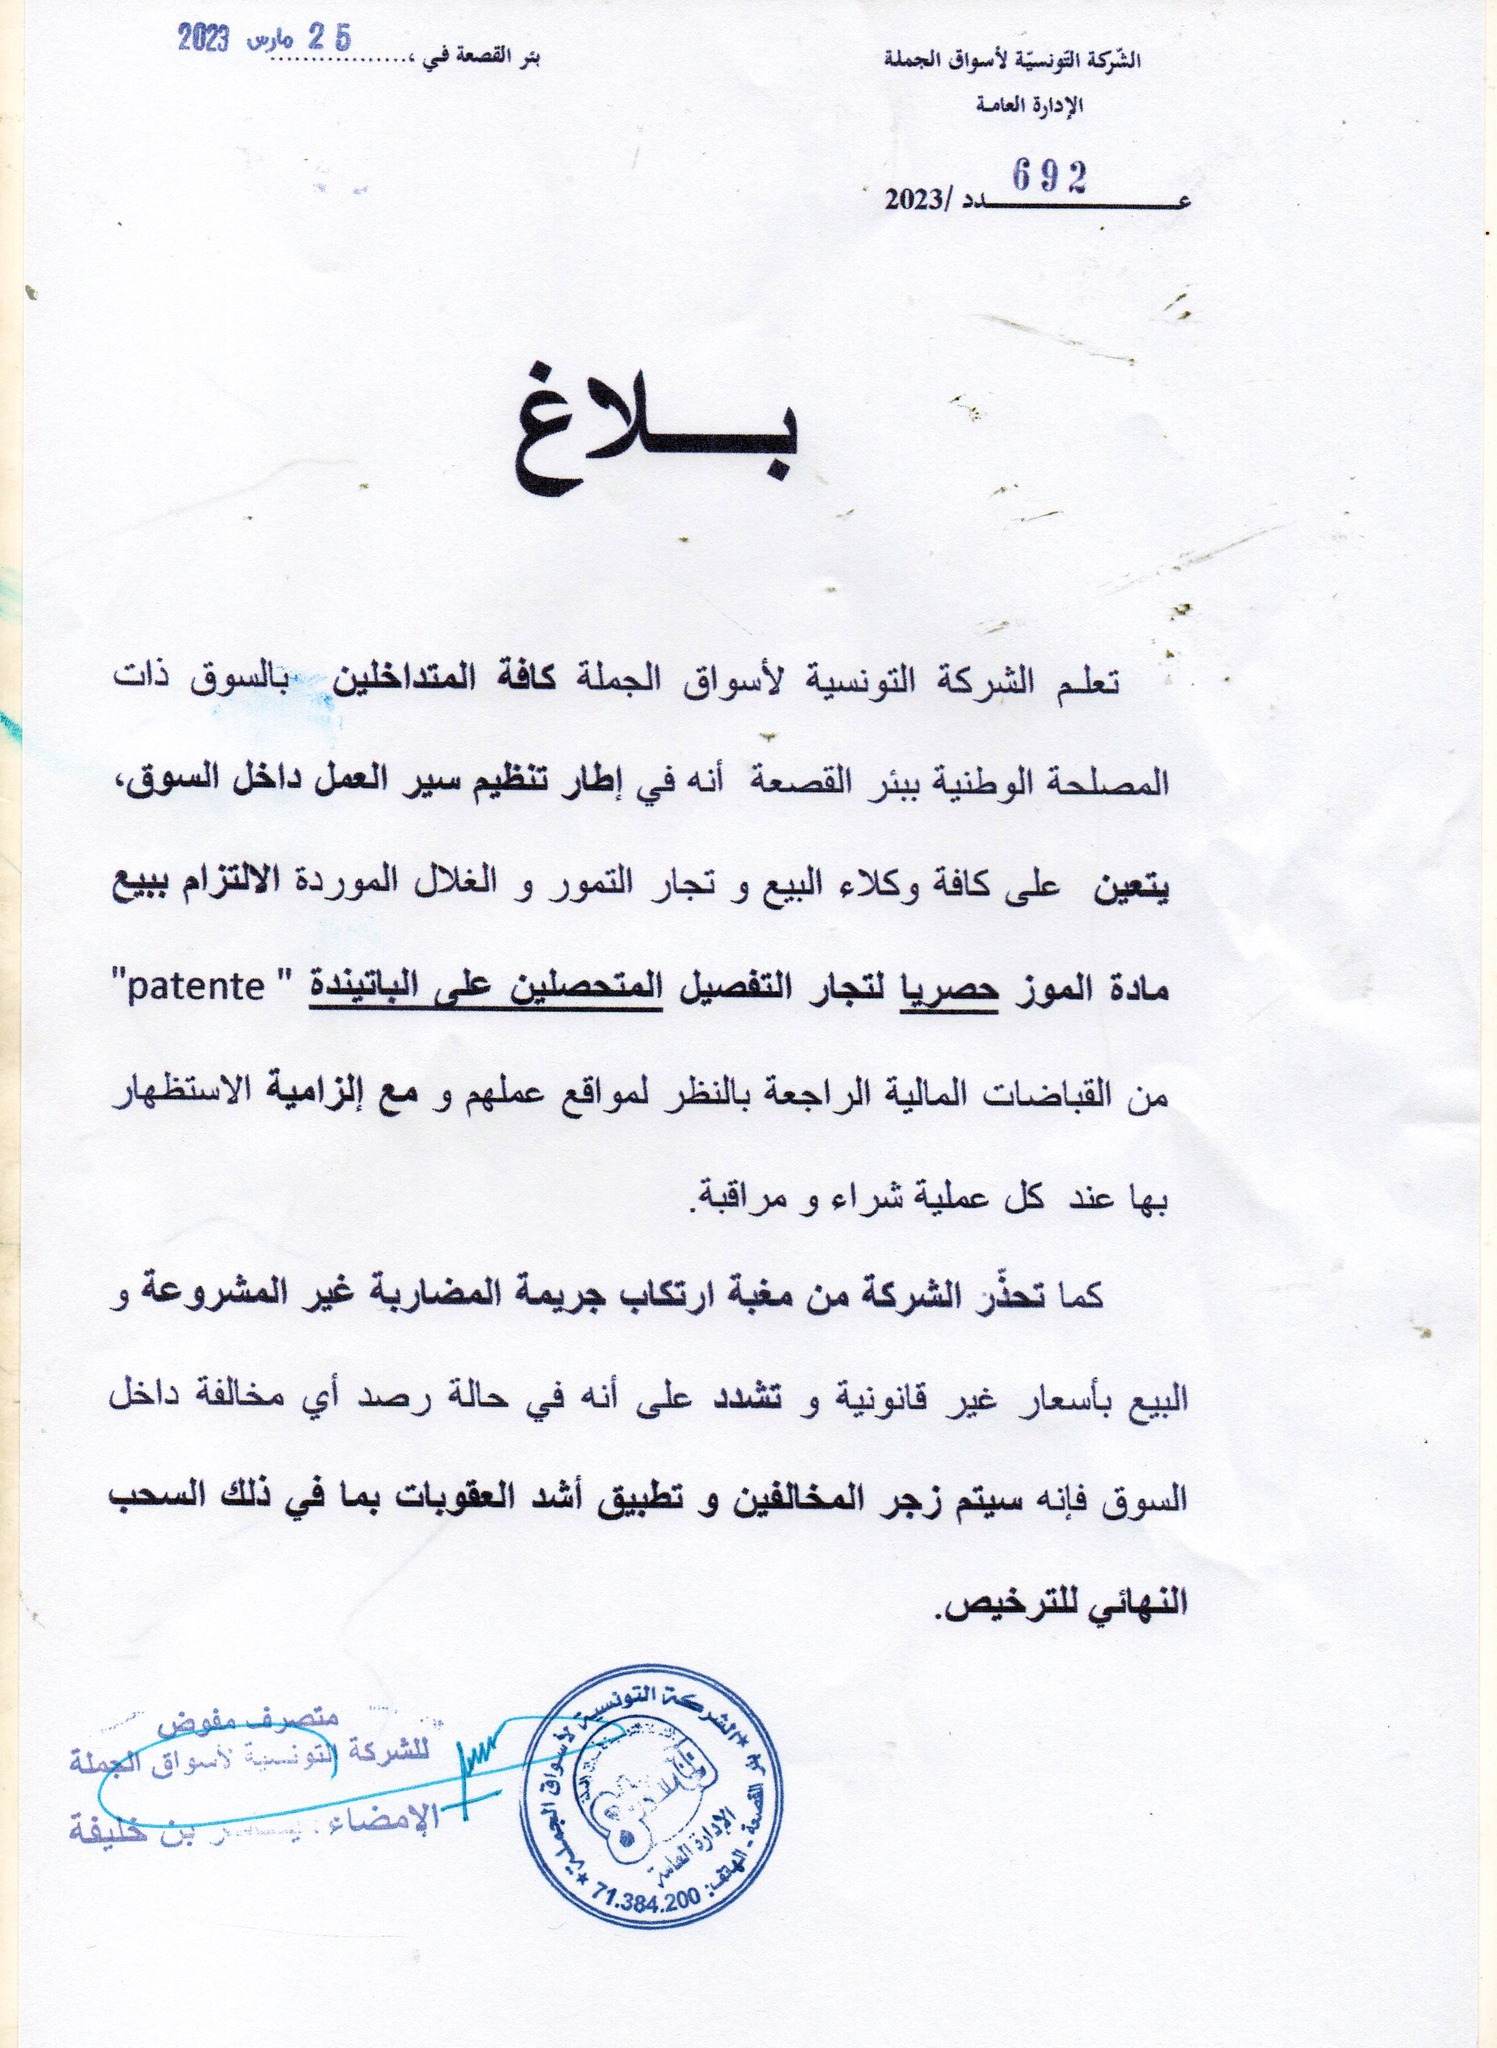 الشّركة التونسيّة لأسواق الجملة
الإدارة العامة
692
عـــدد /2023
بئر القصعة في ،................ 25 مارس 2023
بـــلاغ
تعلم الشركة التونسية لأسواق الجملة كافة المتداخلين بالسوق ذات
المصلحة الوطنية ببئر القصعة أنه في إطار تنظيم سير العمل داخل السوق،
يتعين على كافة وكلاء البيع و تجار التمور و الغلال الموردة الالتزام ببيع
مادة الموز حصريا لتجار التفصيل المتحصلين على الباتيندة " patente"
من القباضات المالية الراجعة بالنظر لمواقع عملهم و مع إلزامية الاستظهار
بها عند كل عملية شراء و مراقبة.
كما تحذّر الشركة من مغبة ارتكاب جريمة المضاربة غير المشروعة و
البيع بأسعار غير قانونية و تشدد على أنه في حالة رصد أي مخالفة داخل
السوق فإنه سيتم زجر المخالفين و تطبيق أشد العقوبات بما في ذلك السحب
النهائي للترخيص.
متصرف مفوض
للشركة التونسية لأسواق الجملة
الإمضاء : بن خليفة
الشركة التونسية لأسواق الجملة
الإدارة العامة
بئر القصعة - الهاتف: 71.384.200